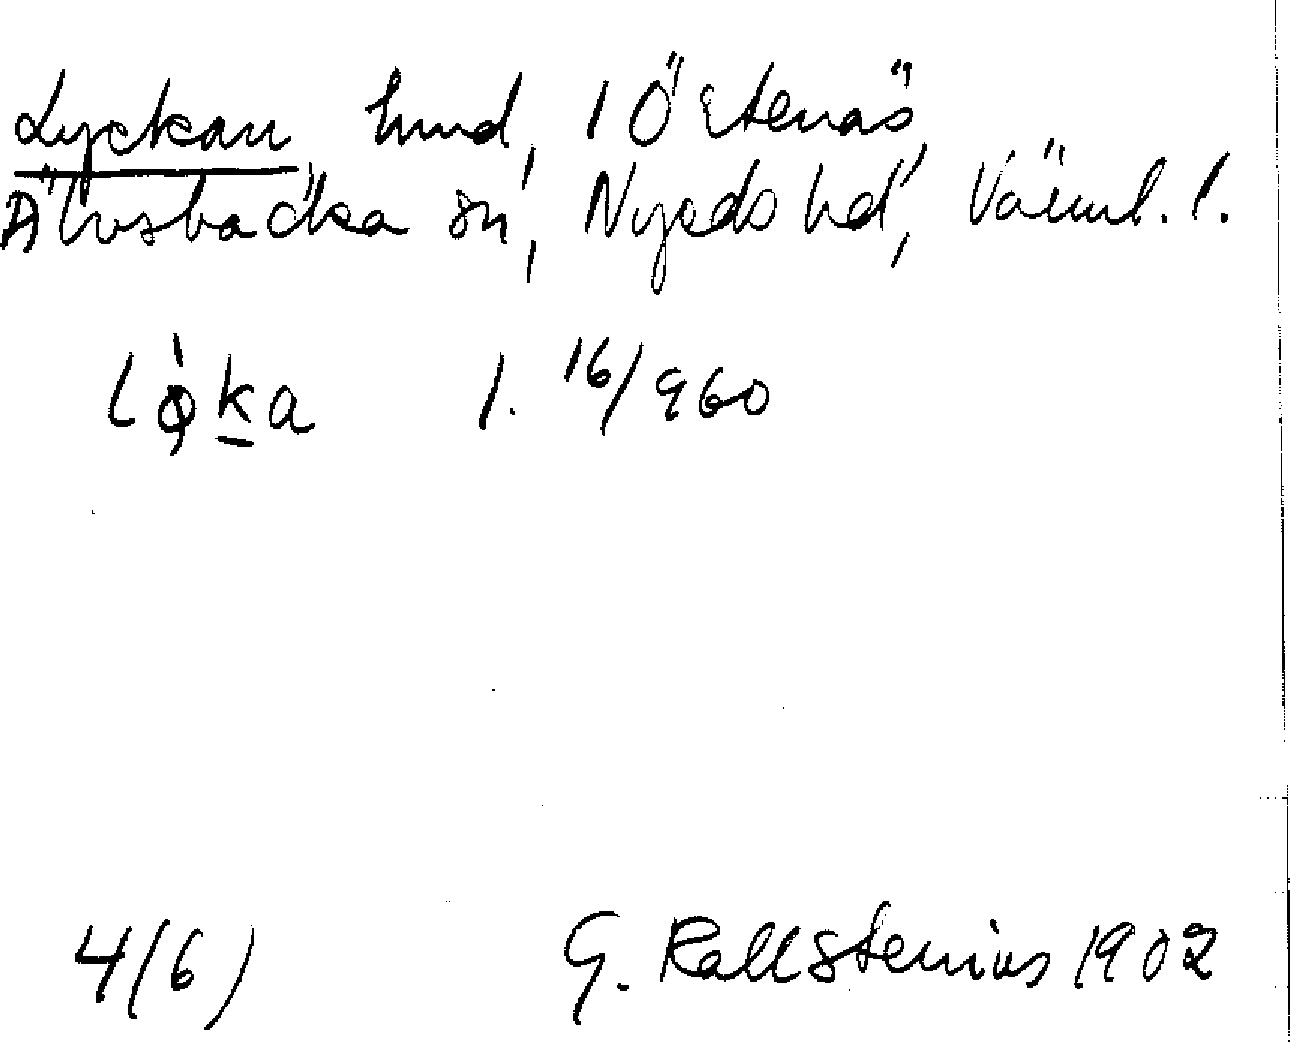 Lyckan hmd, 1 Östenäs,
Älvsbacka sn, Nyeds hd, Värml. l.
lǫ̀ka l. 16/960
4(6) G. Kallstenius 1902